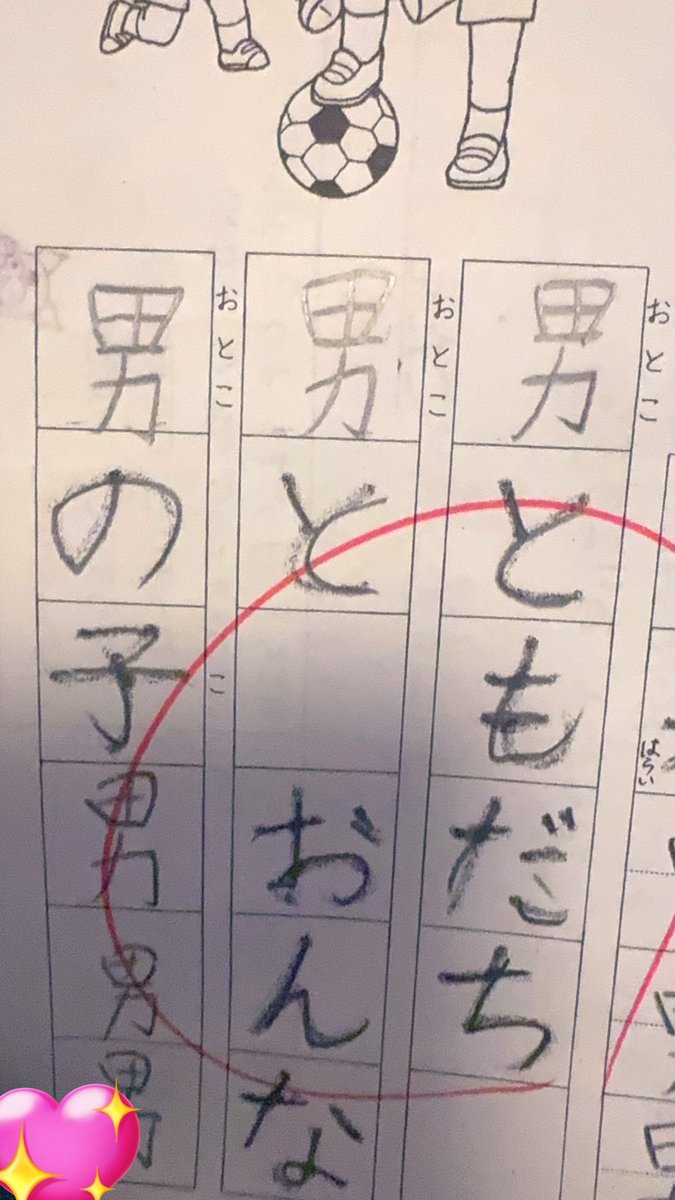 はらい
おとこ
男ともだち
おとこ
男と　おんな
おとこ　こ
男の子男男男